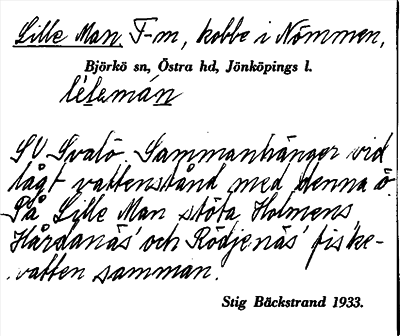 Lille Man, F-m, kobbe i Nömmen,
Björkö sn, Östra hd, Jönköpings l.
lìlemán
SV Svalö. Sammanhänger vid
lågt vattenstånd med denna ö.
På Lille Man stöta Holmens,
Hårdanäs' och Rödjenäs' fiske-
vatten samman.
Stig Bäckstrand 1933.